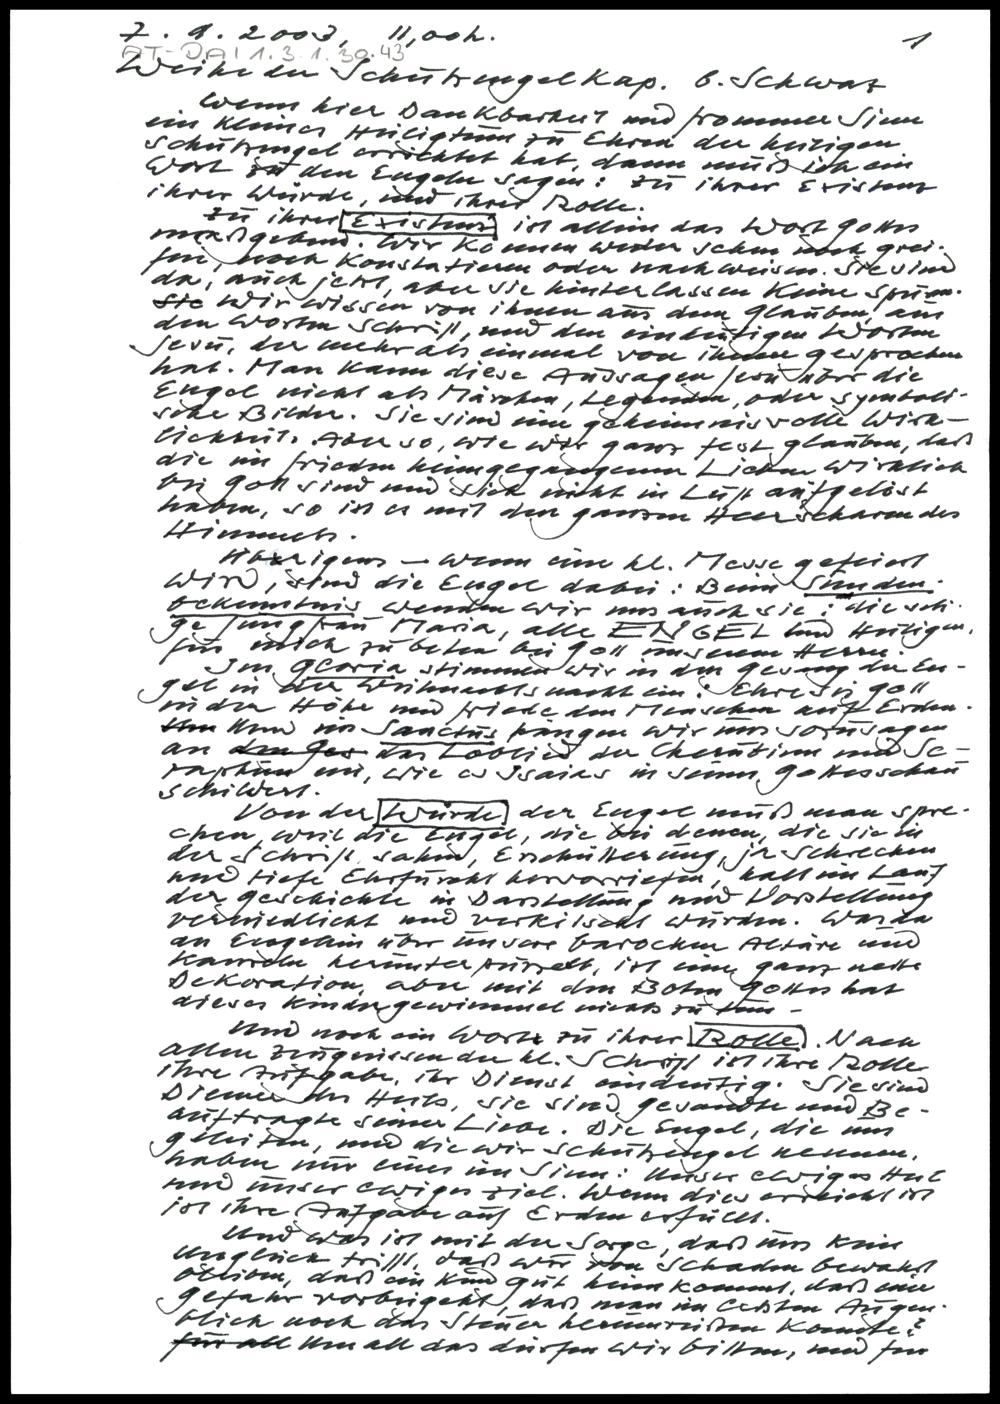 7. 9. 2003, 11,00h.
1
AT-DAI 1.3.1.30.43
Weihe der Schutzengelkap. b. Schwaz
Wenn hier Dankbarkeit und frommer Sinn
ein kleines Heiligtum zu Ehren der heiligen
Schutzengel errichtet hat, dann muß ich ein
Wort zu den Engeln sagen: Zu ihrer Existenz
ihrer Würde, und ihrer Rolle.
Zu ihrer Existenz ist allein das Wort Gottes
maßgebend. Wir können weder sehen noch grei-
fen, noch konstatieren oder nachweisen. Sie sind
da, auch jetzt, aber sie hinterlassen keine Spuren.
Sie Wir wissen von ihnen aus dem Glauben, aus
den Worten Schrift, und den eindeutigen Worten
Jesu, der mehr als einmal von ihnen gesprochen
hat. Man kann diese Aussagen Jesu über die
Engel nicht als Märchen, Legenden, oder symboli-
sche Bilder. Sie sind eine geheimnisvolle Wirk-
lichkeit. Aber so, wie wir ganz fest glauben, daß
die im Frieden heimgegangenen Lieben wirklich
bei Gott sind und sich nicht in Luft aufgelöst
haben, so ist es mit den ganzen Heerscharen des
Himmels.
Übrigens – wenn eine hl. Messe gefeiert
wird, sind die Engel dabei: Beim Sünden-
bekenntnis wenden wir uns auch sie: die seli-
ge Jungfrau Maria, alle ENGEL und Heiligen,
für mich zu beten bei Gott unserem Herrn.
Im Gloria stimmen wir in den Gesang der En-
gel in der Weihnachtsnacht ein: Ehre sei Gott
in der Höhe und Friede den Menschen auf Erden.
Um Und im Sanctus hängen wir uns sozusagen
an den Ges das Loblied der Cherubim und Se-
raphim an, wie es Isaias in seiner Gottesschau
schildert.
Von der Würde der Engel muß man spre-
chen, weil die Engel, die bei denen, die sie in
der Schrift sahen, Erschütterung, ja Schrecken
und tiefe Ehrfurcht hervorriefen, halt im Lauf
der Geschichte in Darstellung und Vorstellung
verniedlicht und verkitscht wurden. Was da
an Engelein über unsere barocken Altäre und
Kanzeln herunterpurzelt, ist eine ganz nette
Dekoration, aber mit den Boten Gottes hat
dieses Kindergewimmel nichts zu tun –
Und noch ein Wort zu ihrer Rolle. Nach
allen Zeugnissen der hl. Schrift ist ihre Rolle
ihre Aufgabe, ihr Dienst eindeutig. Sie sind
Diener des Heils, sie sind Gesandte und Be-
auftragte seiner Liebe. Die Engel, die uns
geleiten, und die wir Schutzengel nennen,
haben nur eines im Sinn: Unser ewiges Heil
und unser ewiges Ziel. Wenn dies erreicht ist
ist ihre Aufgabe auf Erden erfüllt.
Und was ist mit der Sorge, daß uns kein
Unglück trifft, daß wir von Schaden bewahrt
bleiben, daß ein Kind gut heimkommt, daß eine
Gefahr vorbeigeht, daß man im letzten Augen-
blick noch das Steuer herumreißen konnte?
für all Um all das dürfen wir bitten, und für